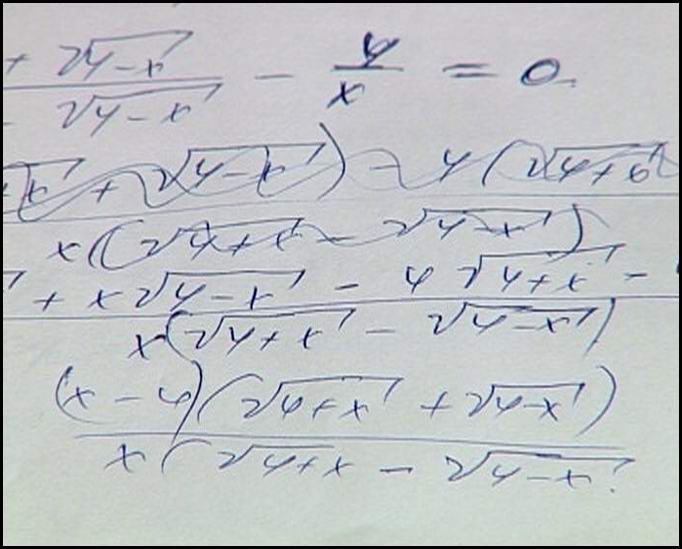 + √4-x / √4-x - 4/x = 0
+ √4-x) - 4(√4+x
x(√4+x - √4-x)
+ x√4-x - 4√4+x -
x(√4+x - √4-x)
(x-4)(√4+x + √4-x)
x(√4+x - √4-x